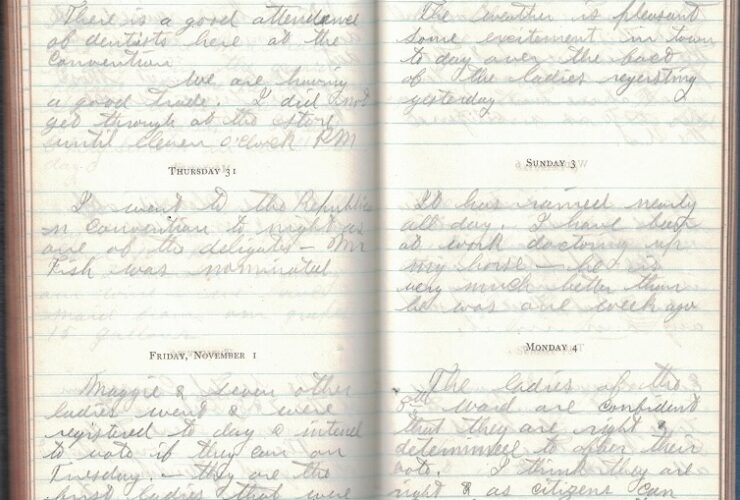 There is a good attendence
of dentists here at the
Convention
We are having
a good trade. I did not
get through at the store
until Eleven O'Clock P.M
THURSDAY 31
I went to the Republic
n Convention to night as
one of the deligates - Mr
Fish was nominated
FRIDAY, NOVEMBER 1
Maggie & seven other
ladies went & were
registered to day & intend
to vote if they can on
Tuesday, - they are the
first ladies that were
The weather is pleasant
some excitement in town
to day over the
of the ladies regersting
yesterday
SUNDAY 3
It has rained nearly
all day. I have been
at work doctoring up
my horse - he is
very much better than
he was one week ago
MONDAY 4
The ladies of the
8th Ward are confident
that they are right &
determined to offer their
vote. I think they are
right & as citizens can